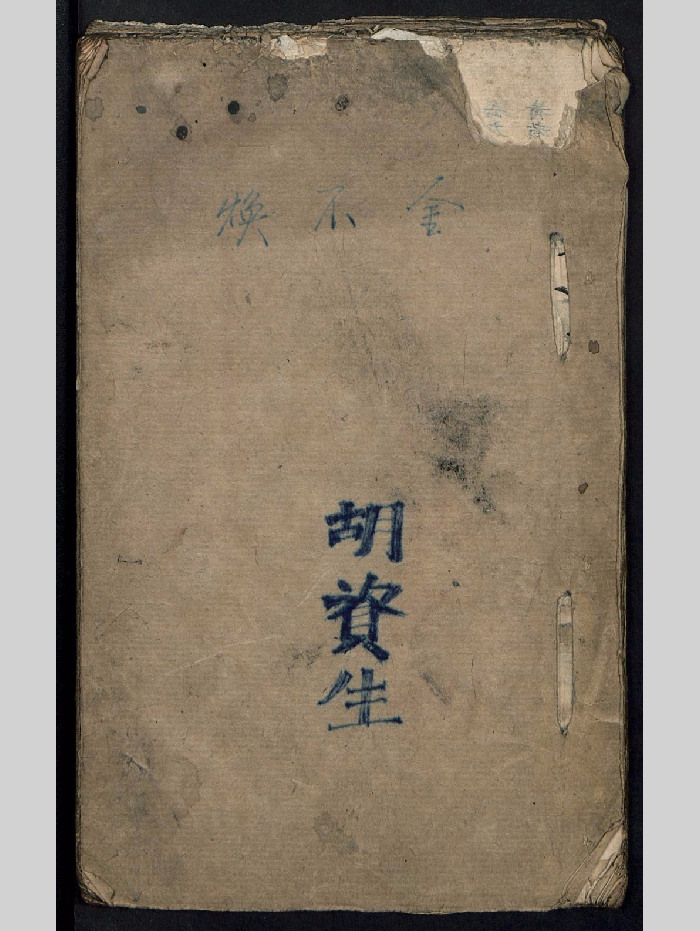 金不煥
胡資生